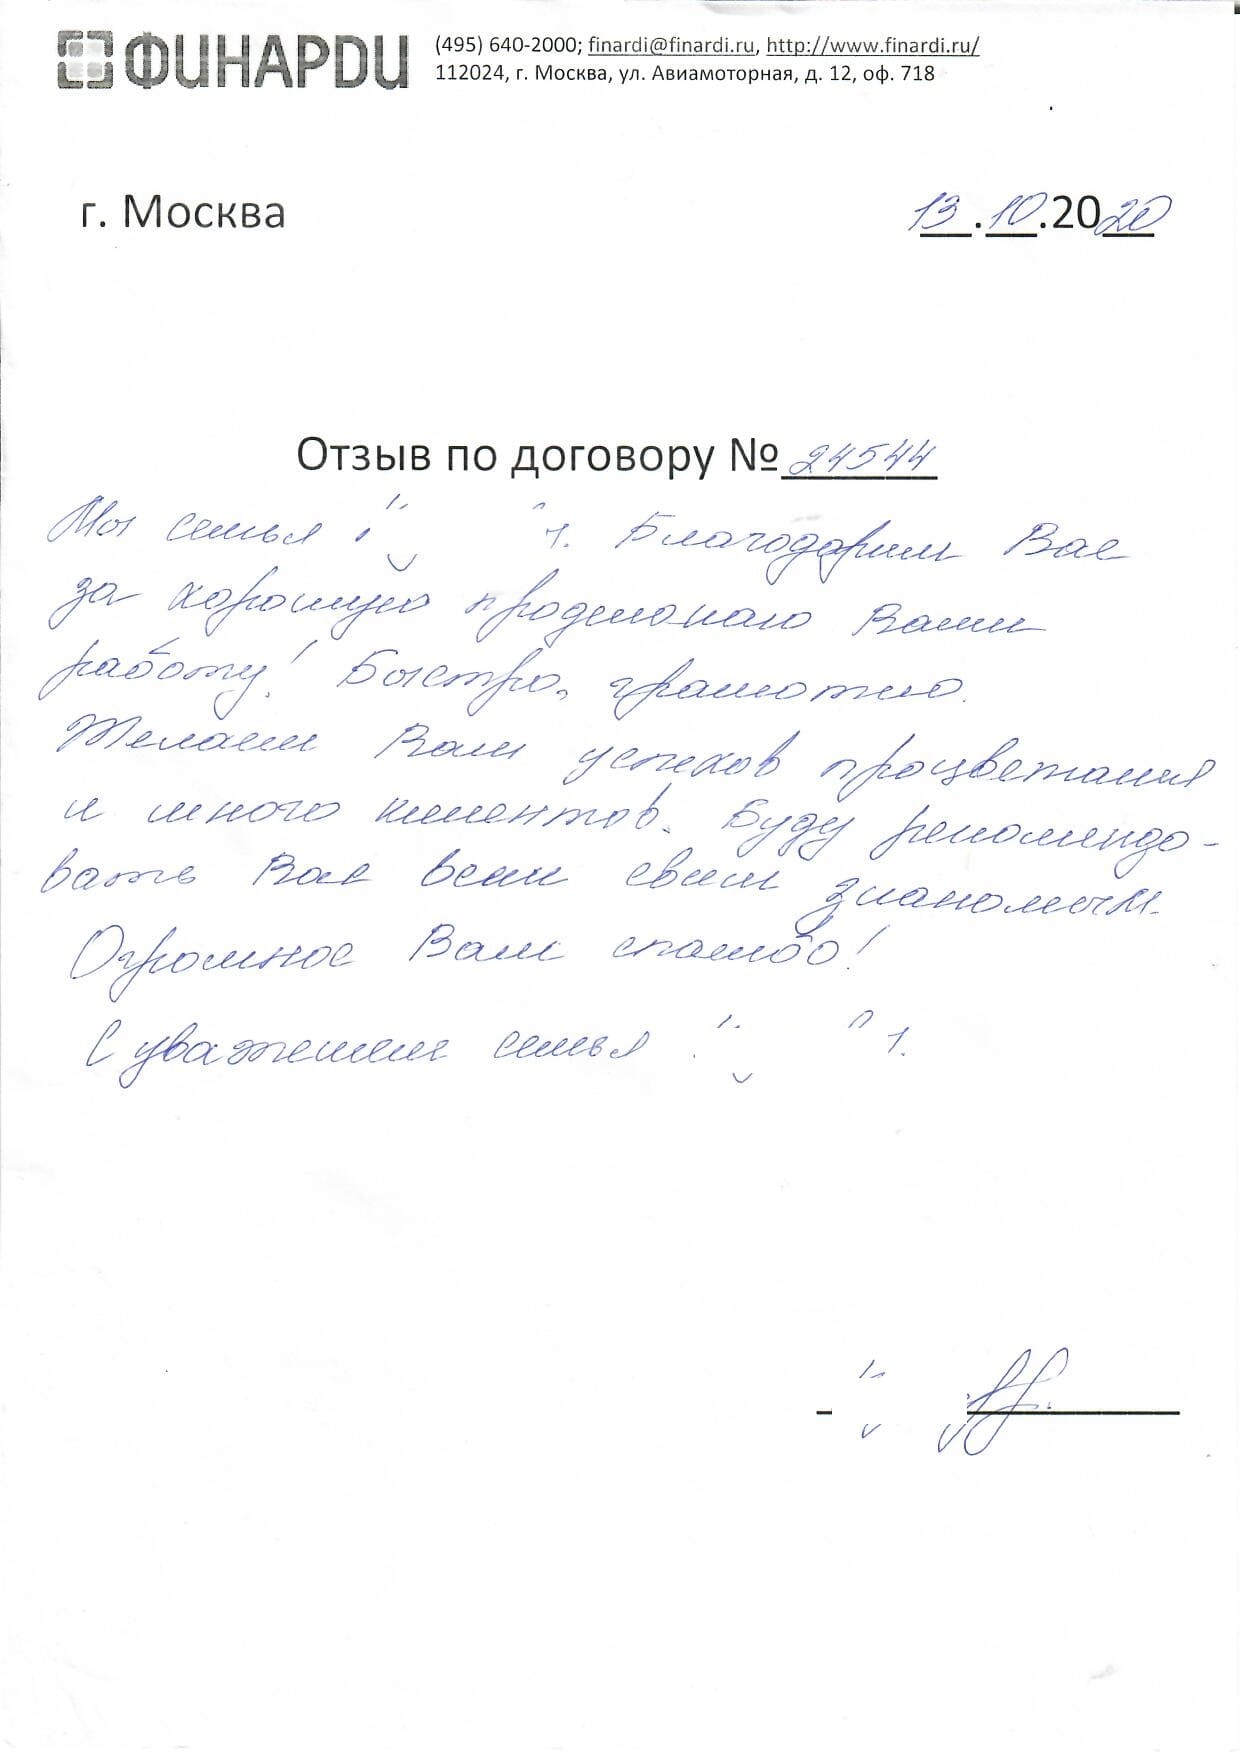 ФИНАРДИ
(495) 640-2000; finardi@finardi.ru, http://www.finardi.ru/
112024, г. Москва, ул. Авиамоторная, д. 12, оф. 718
г. Москва 13.10.2020
Отзыв по договору № 24544
Мы семья Благодарим Вас
за хорошую проделоную Вами
работу! Быстро, грамотно.
Желаем Вам успехов процветания
и много клиентов. Буду рекомендо-
вать Вас всем своим знакомым.
Огромное Вам спасибо!
С уважением семья